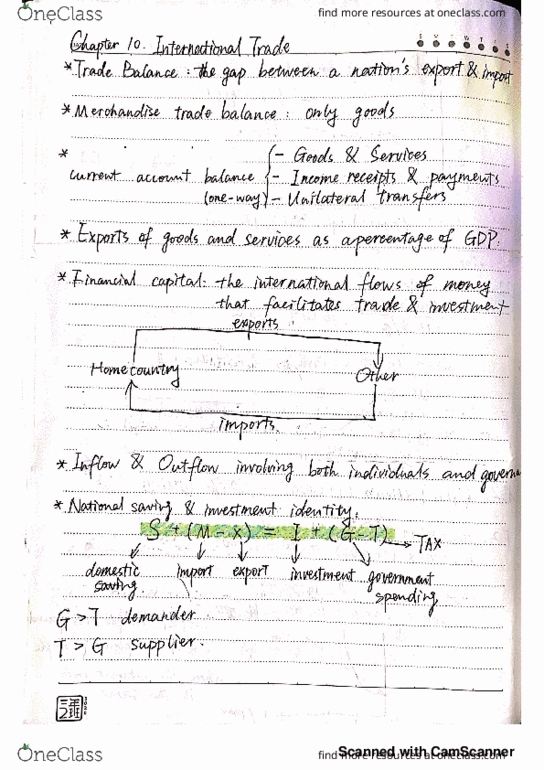 OneClass
find more resources at oneclass.com
Chapter 10. International Trade
*Trade Balance: the gap between a nation's export & import
*Merchandise trade balance: only goods
*
- Goods & Services
current account balance - Income receipts & payments
(one-way) - Unilateral transfers
* Exports of goods and services as a percentage of GDP.
* Financial capital: the international flows of money
that facilitates trade & investment
exports
Home country Other
imports.
* Inflow & Outflow involving both individuals and governm
* National saving & investment identity.
S + (M - X) = I + (G - T) TAX
domestic import export investment government
saving. spending
G > T demander
T > G supplier.
OneClass
find more resources at oneclass.com
Scanned with CamScanner